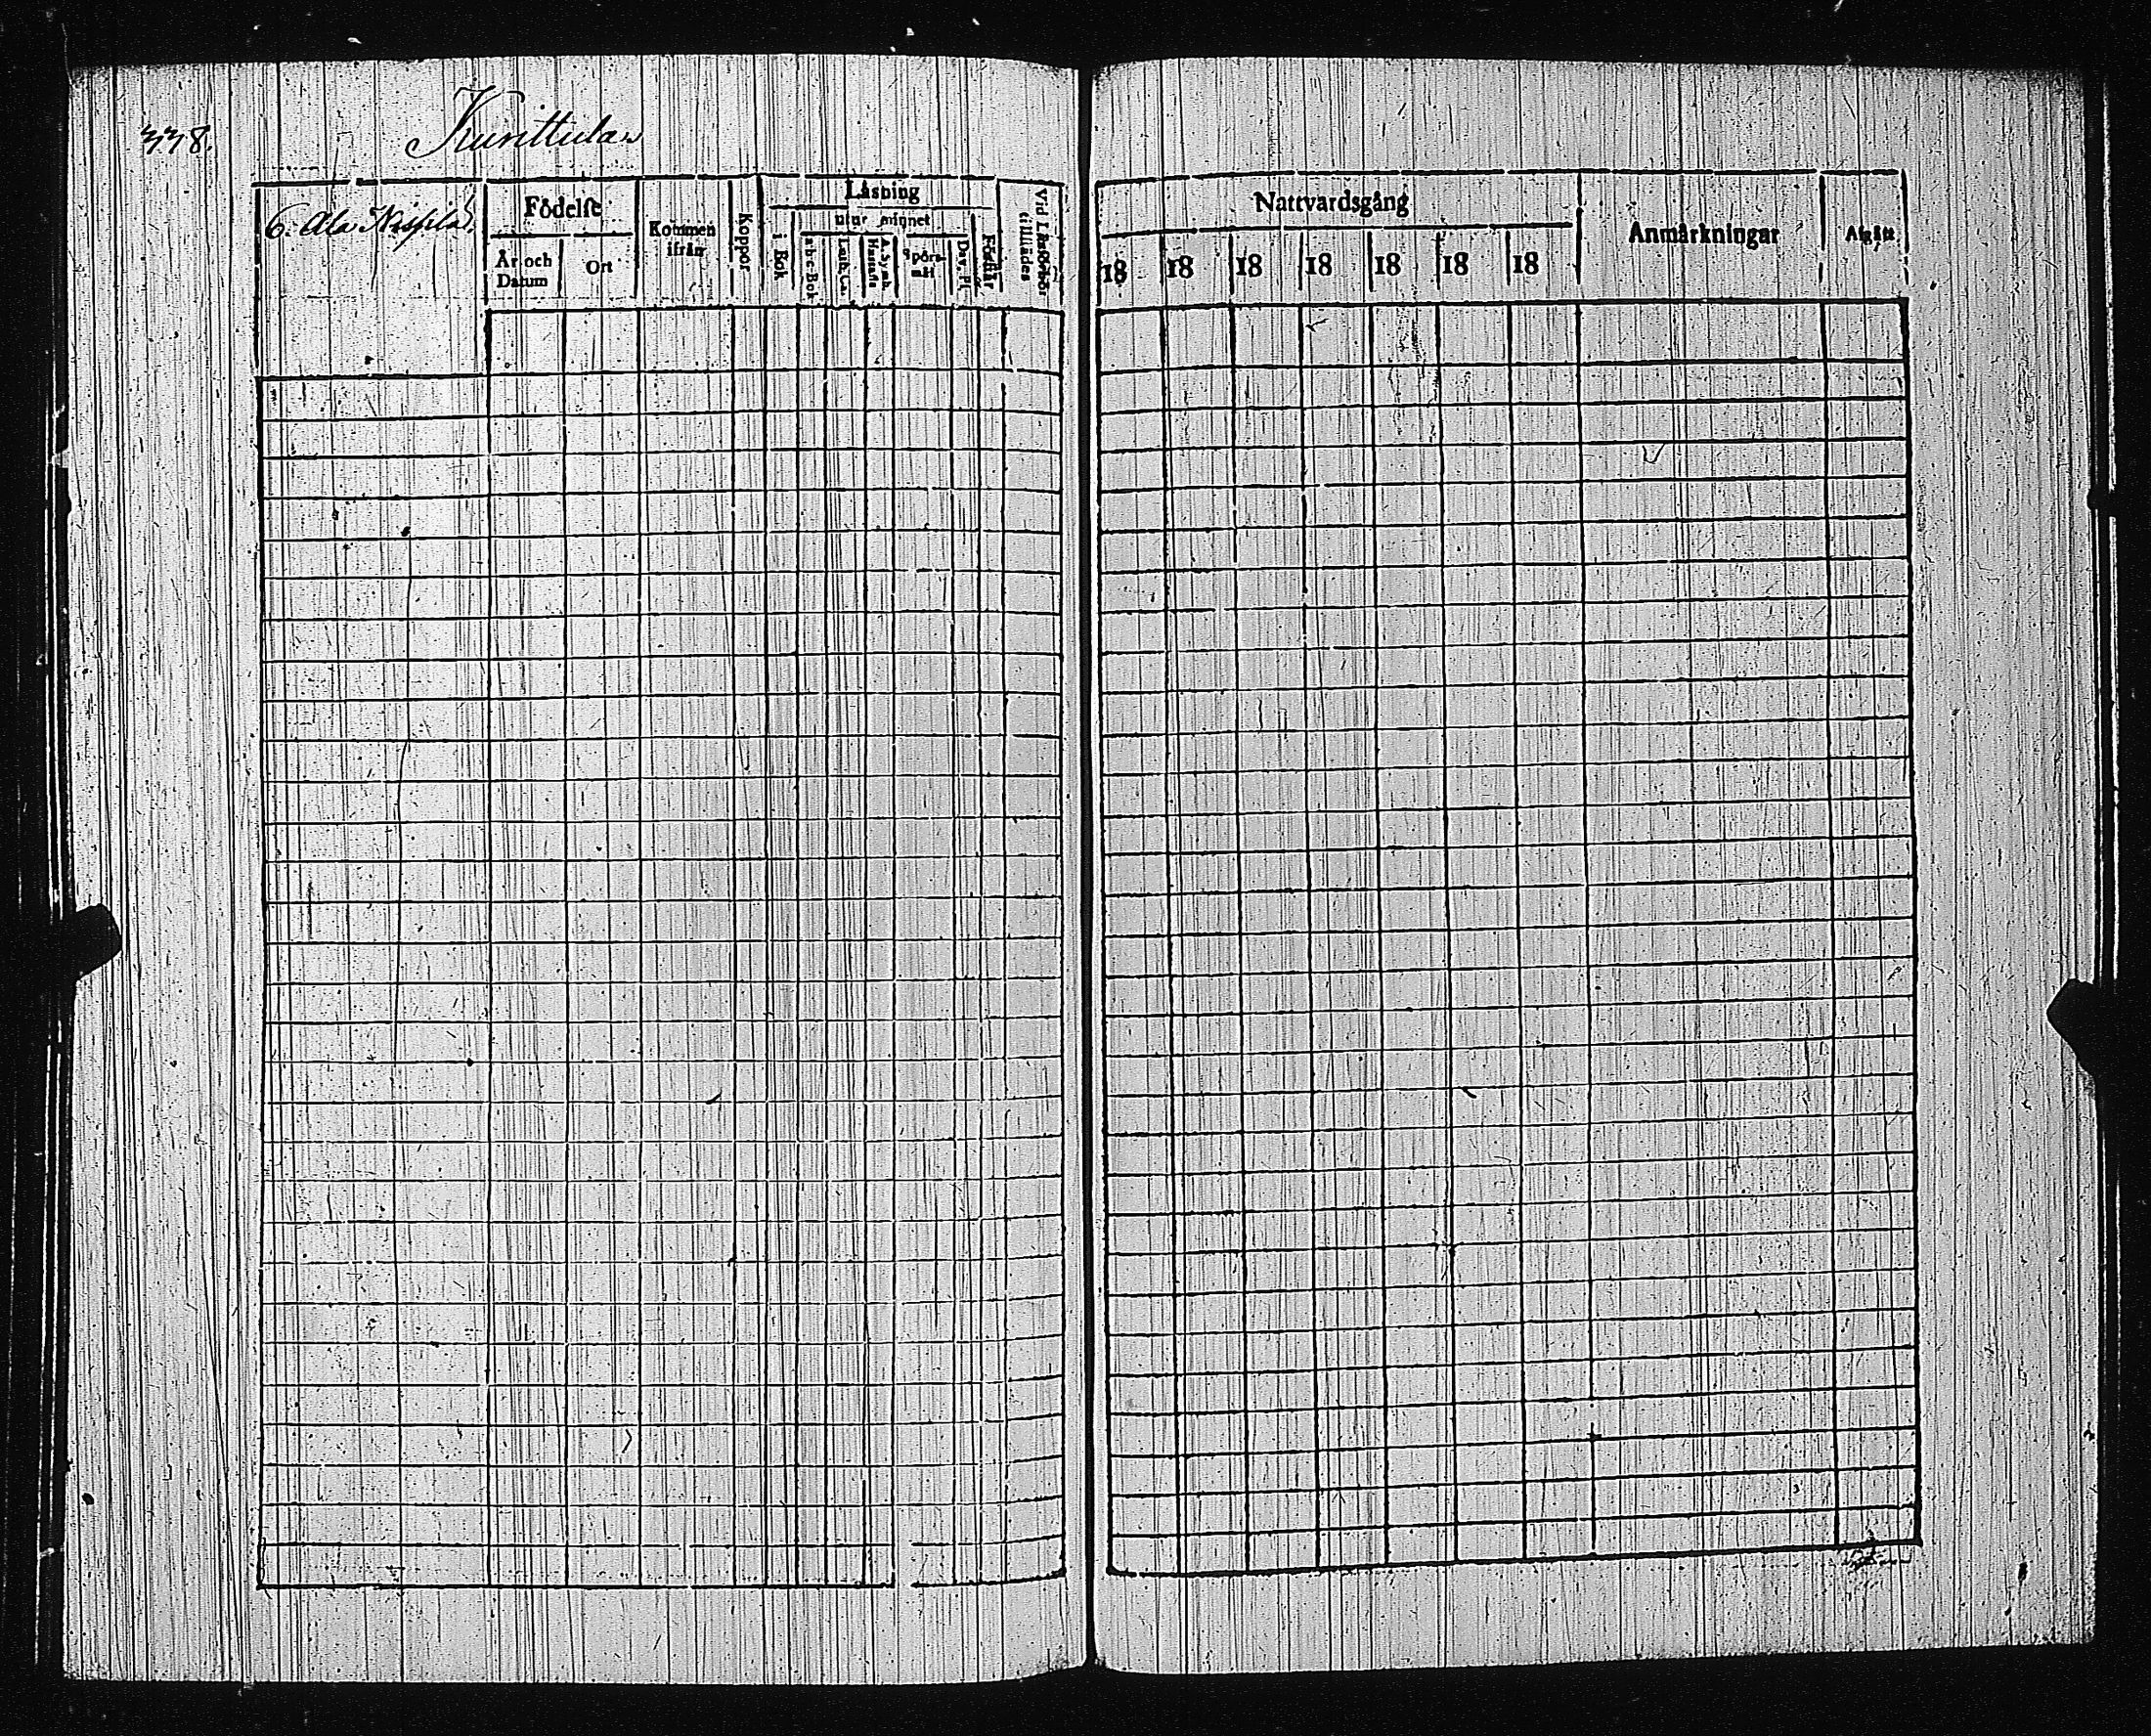 338.
Kunittula
6. Ala Nissilä
Födelse
År och Datum
Ort
Kommen ifrån
Koppor
Läsning
i Bok
utur minnet
a b c-Bok
Luth. Cat.
A. Symb.
Hustafl.
Spörs-mål
Dav. Ps.
Förstår
Vid Läsförhör tillstädes
Nattvardsgång
18 18 18 18 18 18 18
Anmärkningar
Afgått